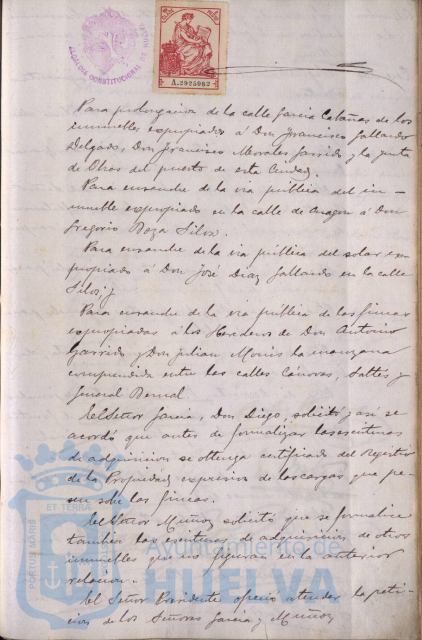 ALCALDIA CONSTITUCIONAL DE HUELVA
A.2925982
Para prolongacion de la calle Garcia Cabañas de los
inmuebles expropiados á Don Francisco Gallardo
Delgado, Don Francisco Morales Garrido y la Junta
de Obras del puerto de esta Ciudad.
Para ensanche de la via pública del in-
mueble expropiado en la calle de Aragon á Don
Gregorio Boza Silva.
Para ensanche de la via pública del solar ex-
propiado á Don José Diaz Gallardo en la calle
Silos; y
Para ensanche de la via pública de las fincas
expropiadas á los Herederos de Don Antonio
Garrido y Don Julian Monis la manzana
comprendida entre las calles Cánovas, Saltés y
General Bernal
El Señor Garcia, Don Diego, solicitó y asi se
acordó que antes de formalizar las escrituras
de adquisicion se obtenga certificado del Registro
de la Propiedad expresivo de las cargas que pe-
sen sobre las fincas.
El Señor Muñoz solicitó que se formalice
tambien las escrituras de adquisicion de otros
inmuebles que no figuran en la anterior
relacion.
El Señor Presidente ofreció atender la peti-
cion de los Señores Garcia y Muñoz
PORTUS MARIS
ET TERRÆ
Ayuntamiento de
HUELVA